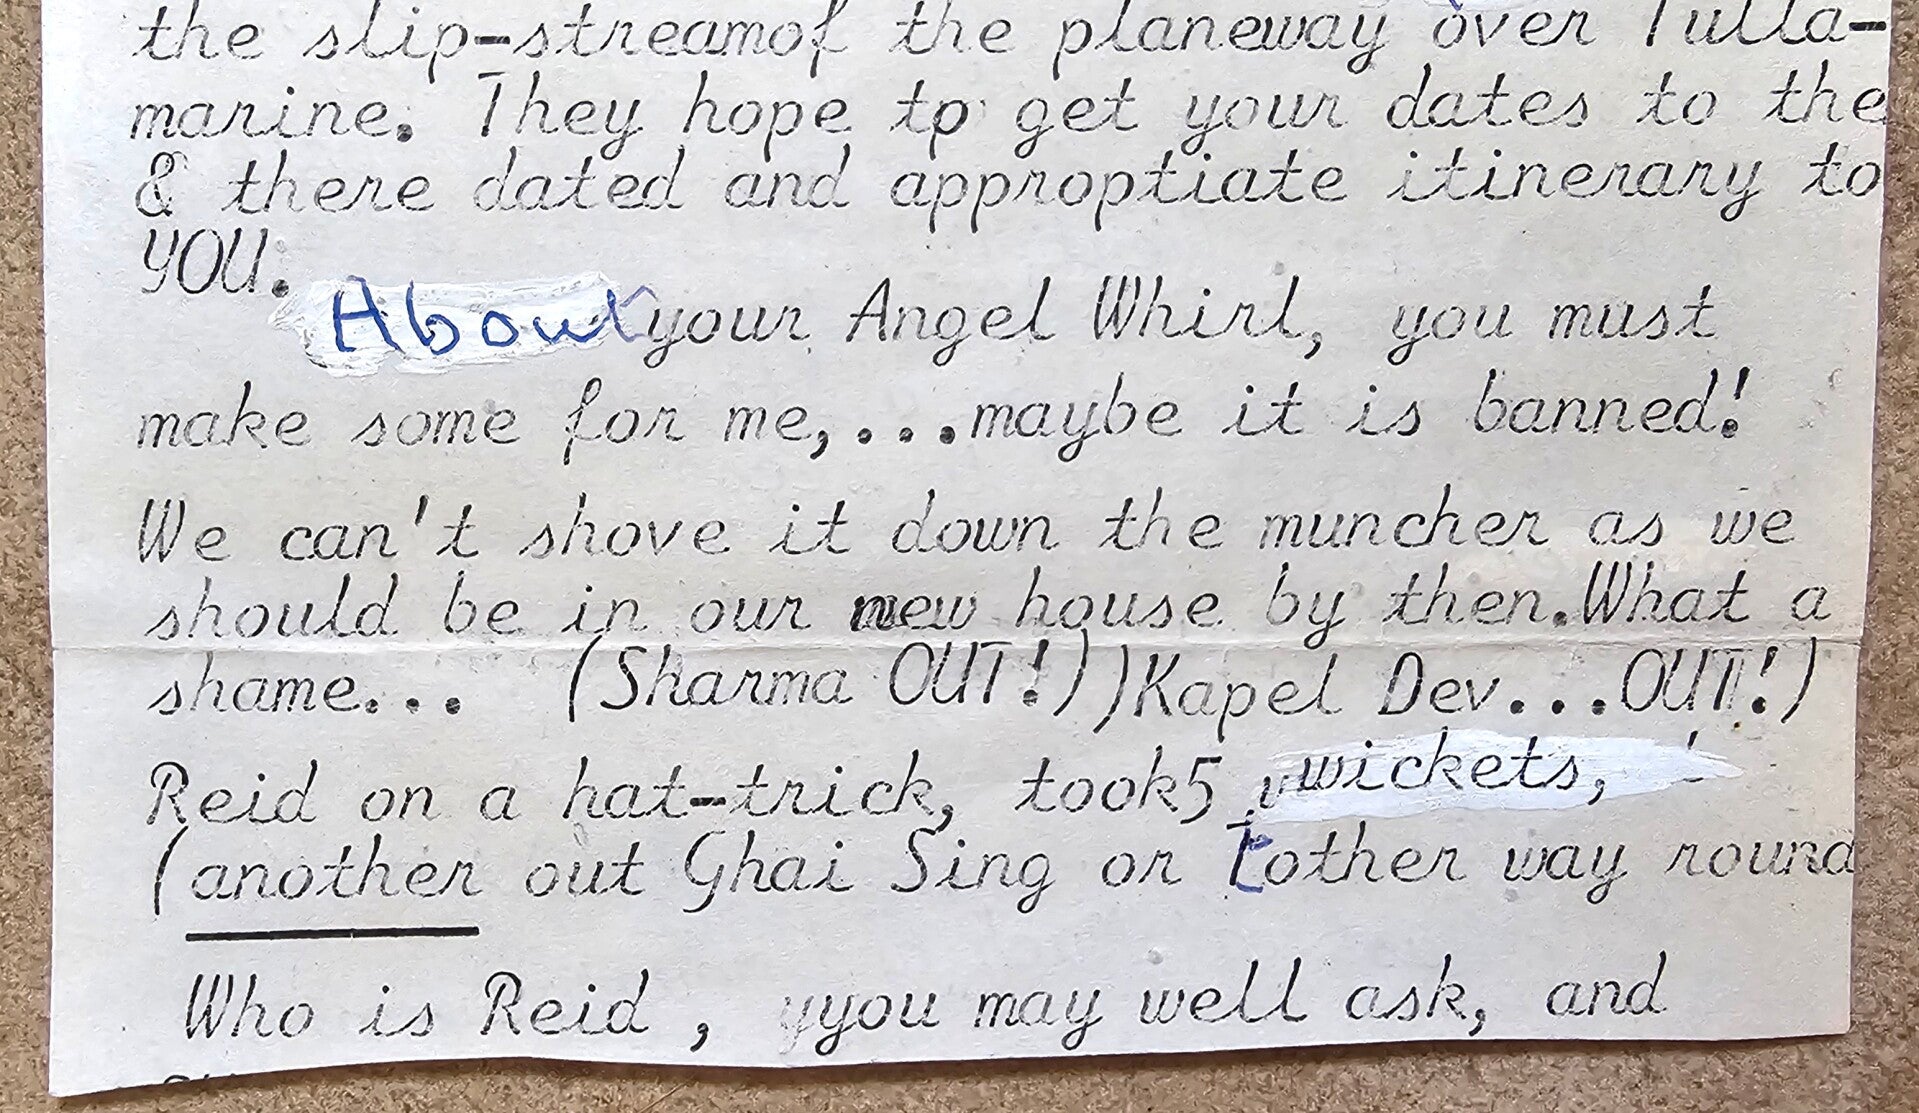 the slip-streamof the planeway over Tulla-
marine. They hope to get your dates to the
& there dated and approptiate itinerary to
YOU.
About your Angel Whirl, you must
make some for me,...maybe it is banned!
We can't shove it down the muncher as we
should be in our new house by then.What a
shame... (Sharma OUT!))Kapel Dev...OUT!)
Reid on a hat-trick, took5 wickets,
(another out Ghai Sing or tother way round
Who is Reid , yyou may well ask, and